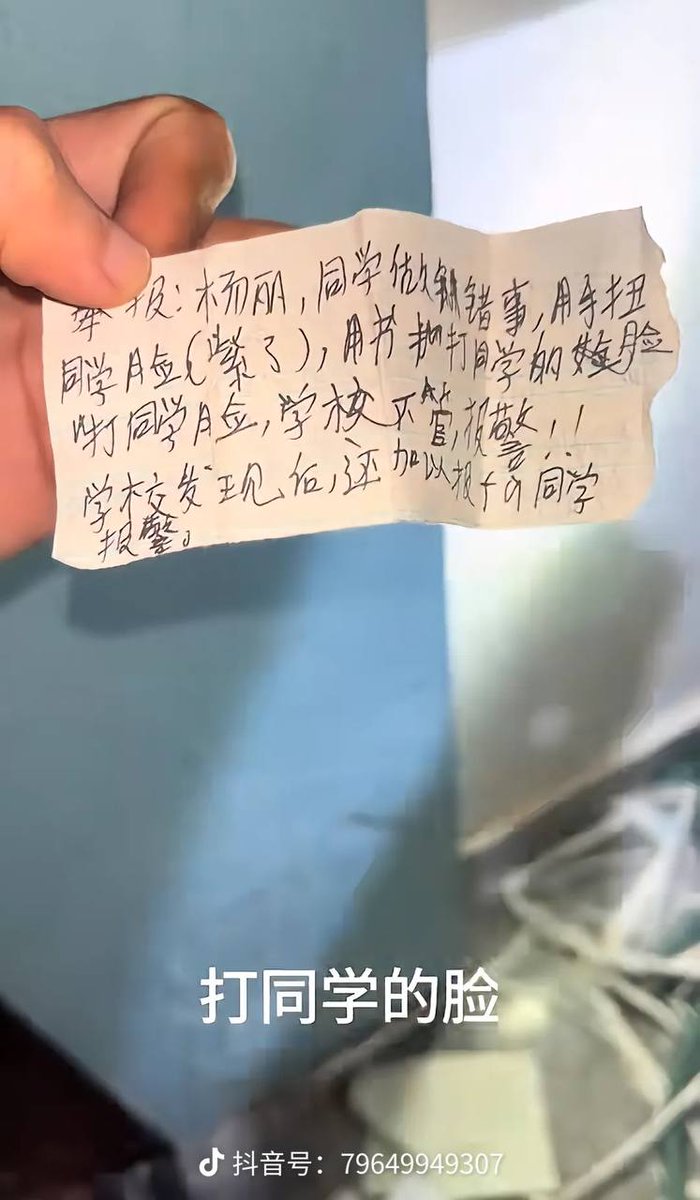 举报：杨丽，同学做错事，用手扭
同学脸（紫了），用书打同学的脸
打同学脸，学校不管，报警！！
学校发现后，还加以报 同学
报警。
打同学的脸
抖音号：79649949307